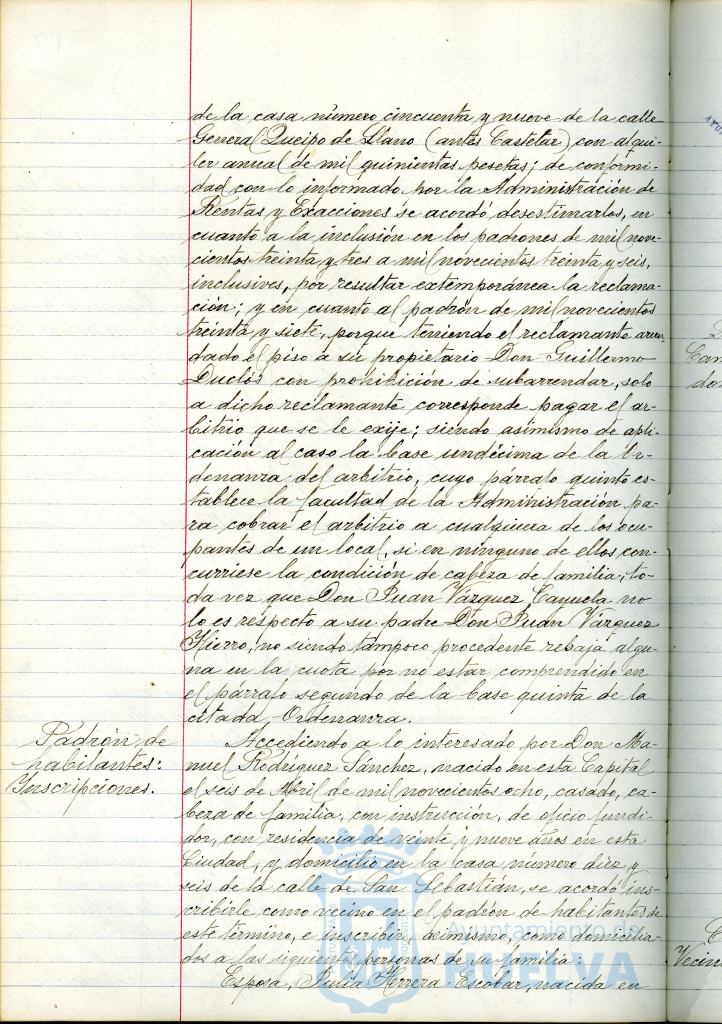 de la casa número cincuenta y nueve de la calle
General Queipo de Llano (antes Castelar) con alqui-
ler anual de mil quinientas pesetas; de conformi-
dad con lo informado por la Administración de
Rentas y Exacciones se acordó desestimarlos, en
cuanto a la inclusión en los padrones de mil nove-
cientos treinta y tres a mil novecientos treinta y seis,
inclusives, por resultar extemporánea la reclama-
ción; y en cuanto al padrón de mil novecientos
treinta y siete, porque teniendo el reclamante arren-
dado el piso a su propietario Don Guillermo
Duclós con prohibición de subarrendar, solo
a dicho reclamante corresponde pagar el ar-
bitrio que se le exije; siendo asimismo de apli-
cación al caso la base undécima de la Or-
denanza del arbitrio, cuyo párrafo quinto es-
tablece la facultad de la Administración pa-
ra cobrar el arbitrio a cualquiera de los ocu-
pantes de un local, si en ninguno de ellos con-
curriese la condición de cabeza de familia; to-
da vez que Don Juan Vázquez Cayuela no
lo es respecto a su padre Don Juan Vázquez
Hierro, no siendo tampoco procedente rebaja algu-
na en la cuota por no estar comprendido en
el párrafo segundo de la base quinta de la
citada Ordenanza.
Padrón de
habitantes:
Inscripciones.
Accediendo a lo interesado por Don Ma-
nuel Rodríguez Sánchez, nacido en esta Capital
el seis de Abril de mil novecientos ocho, casado, ca-
beza de familia, con instrucción, de oficio fundi-
dor, con residencia de veinte y nueve años en esta
Ciudad, y domicilio en la casa número diez y
seis de la calle de San Sebastián, se acordó ins-
cribirle como vecino en el padrón de habitantes de
este término, e inscribir, asimismo, como domicilia-
dos a las siguientes personas de su familia:
Esposa, Julia Herrera Escobar, nacida en
Ayuntamiento de
HUELVA